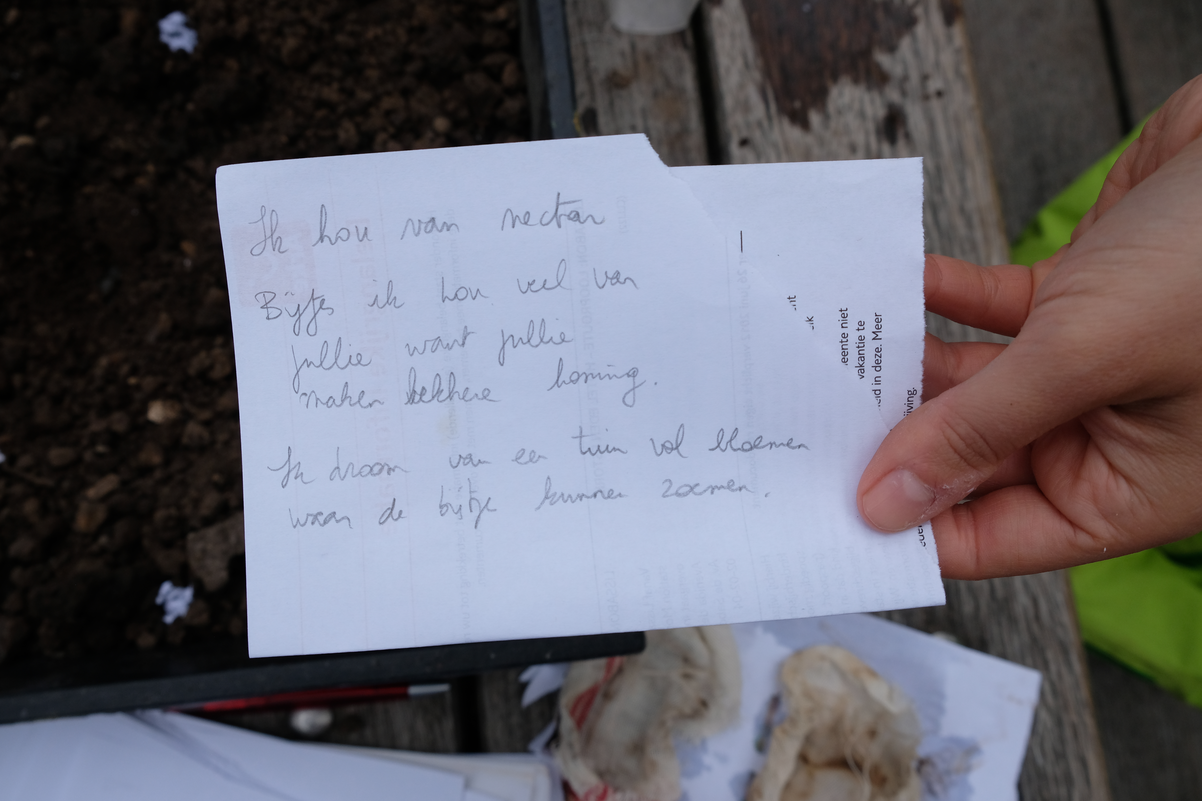 Ik hou van nectar
Bijtjes ik hou veel van
jullie want jullie
maken lekkere honing.
Ik droom van een tuin vol bloemen
waar de bijtje kunnen zoemen.
eente niet
vakantie te
id in deze. Meer
ijving.